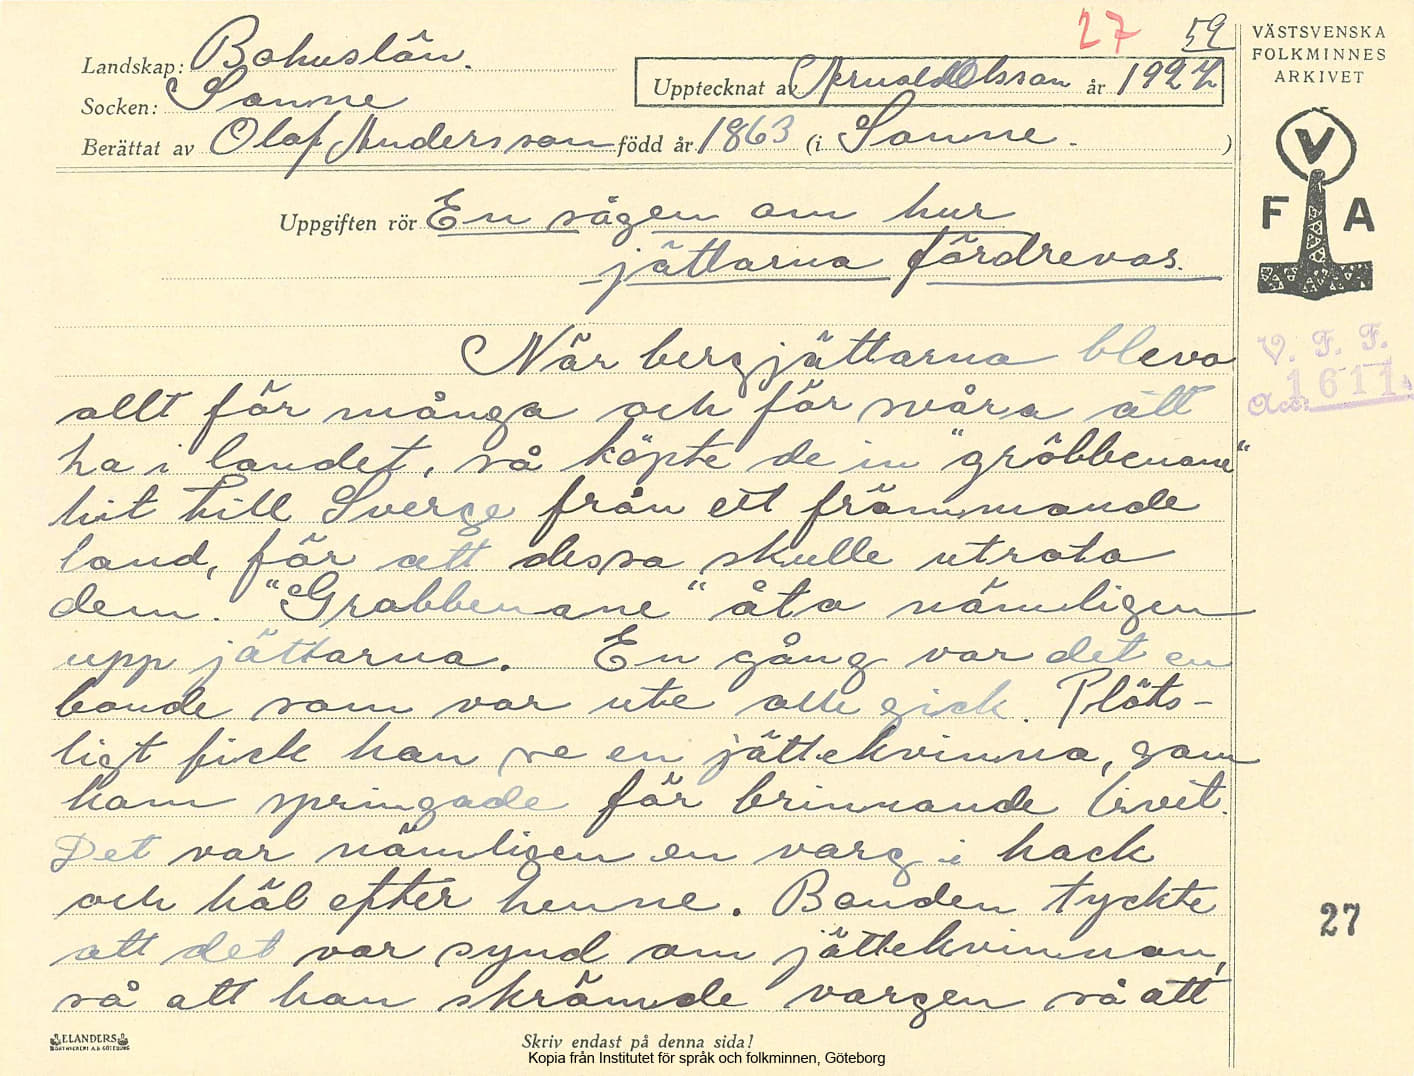 27 59
VÄSTSVENSKA
FOLKMINNES
ARKIVET
Landskap: Bohuslän.
Upptecknat av Arnold Olsson år 1927
Socken: Sanne
Berättat av Olaf Andersson född år 1863 (i Sanne. )
V
F A
Uppgiften rör En sägen om hur
jättarna fördrevos.
När bergjättarna blevo
allt för många och för svåra att
ha i landet, så köpte de in "gröbbenane"
hit till Sverge från ett främmande
land, för att dessa skulle utrota
dem. "Grabbenane" åto nämligen
upp jättarna. En gång var det en
bonde som var ute och gick. Plöts-
ligt fick han se en jättekvinna, som
kom springade för brinnande livet.
Det var nämligen en varg i hack
och häl efter henne. Bonden tyckte
att det var synd om jättekvinnan,
så att han skrämde vargen så att
V. F. F.
Acc. 1611
27
ELANDERS
BOKTRYCKERI A.B. GÖTEBORG
Skriv endast på denna sida!
Kopia från Institutet för språk och folkminnen, Göteborg